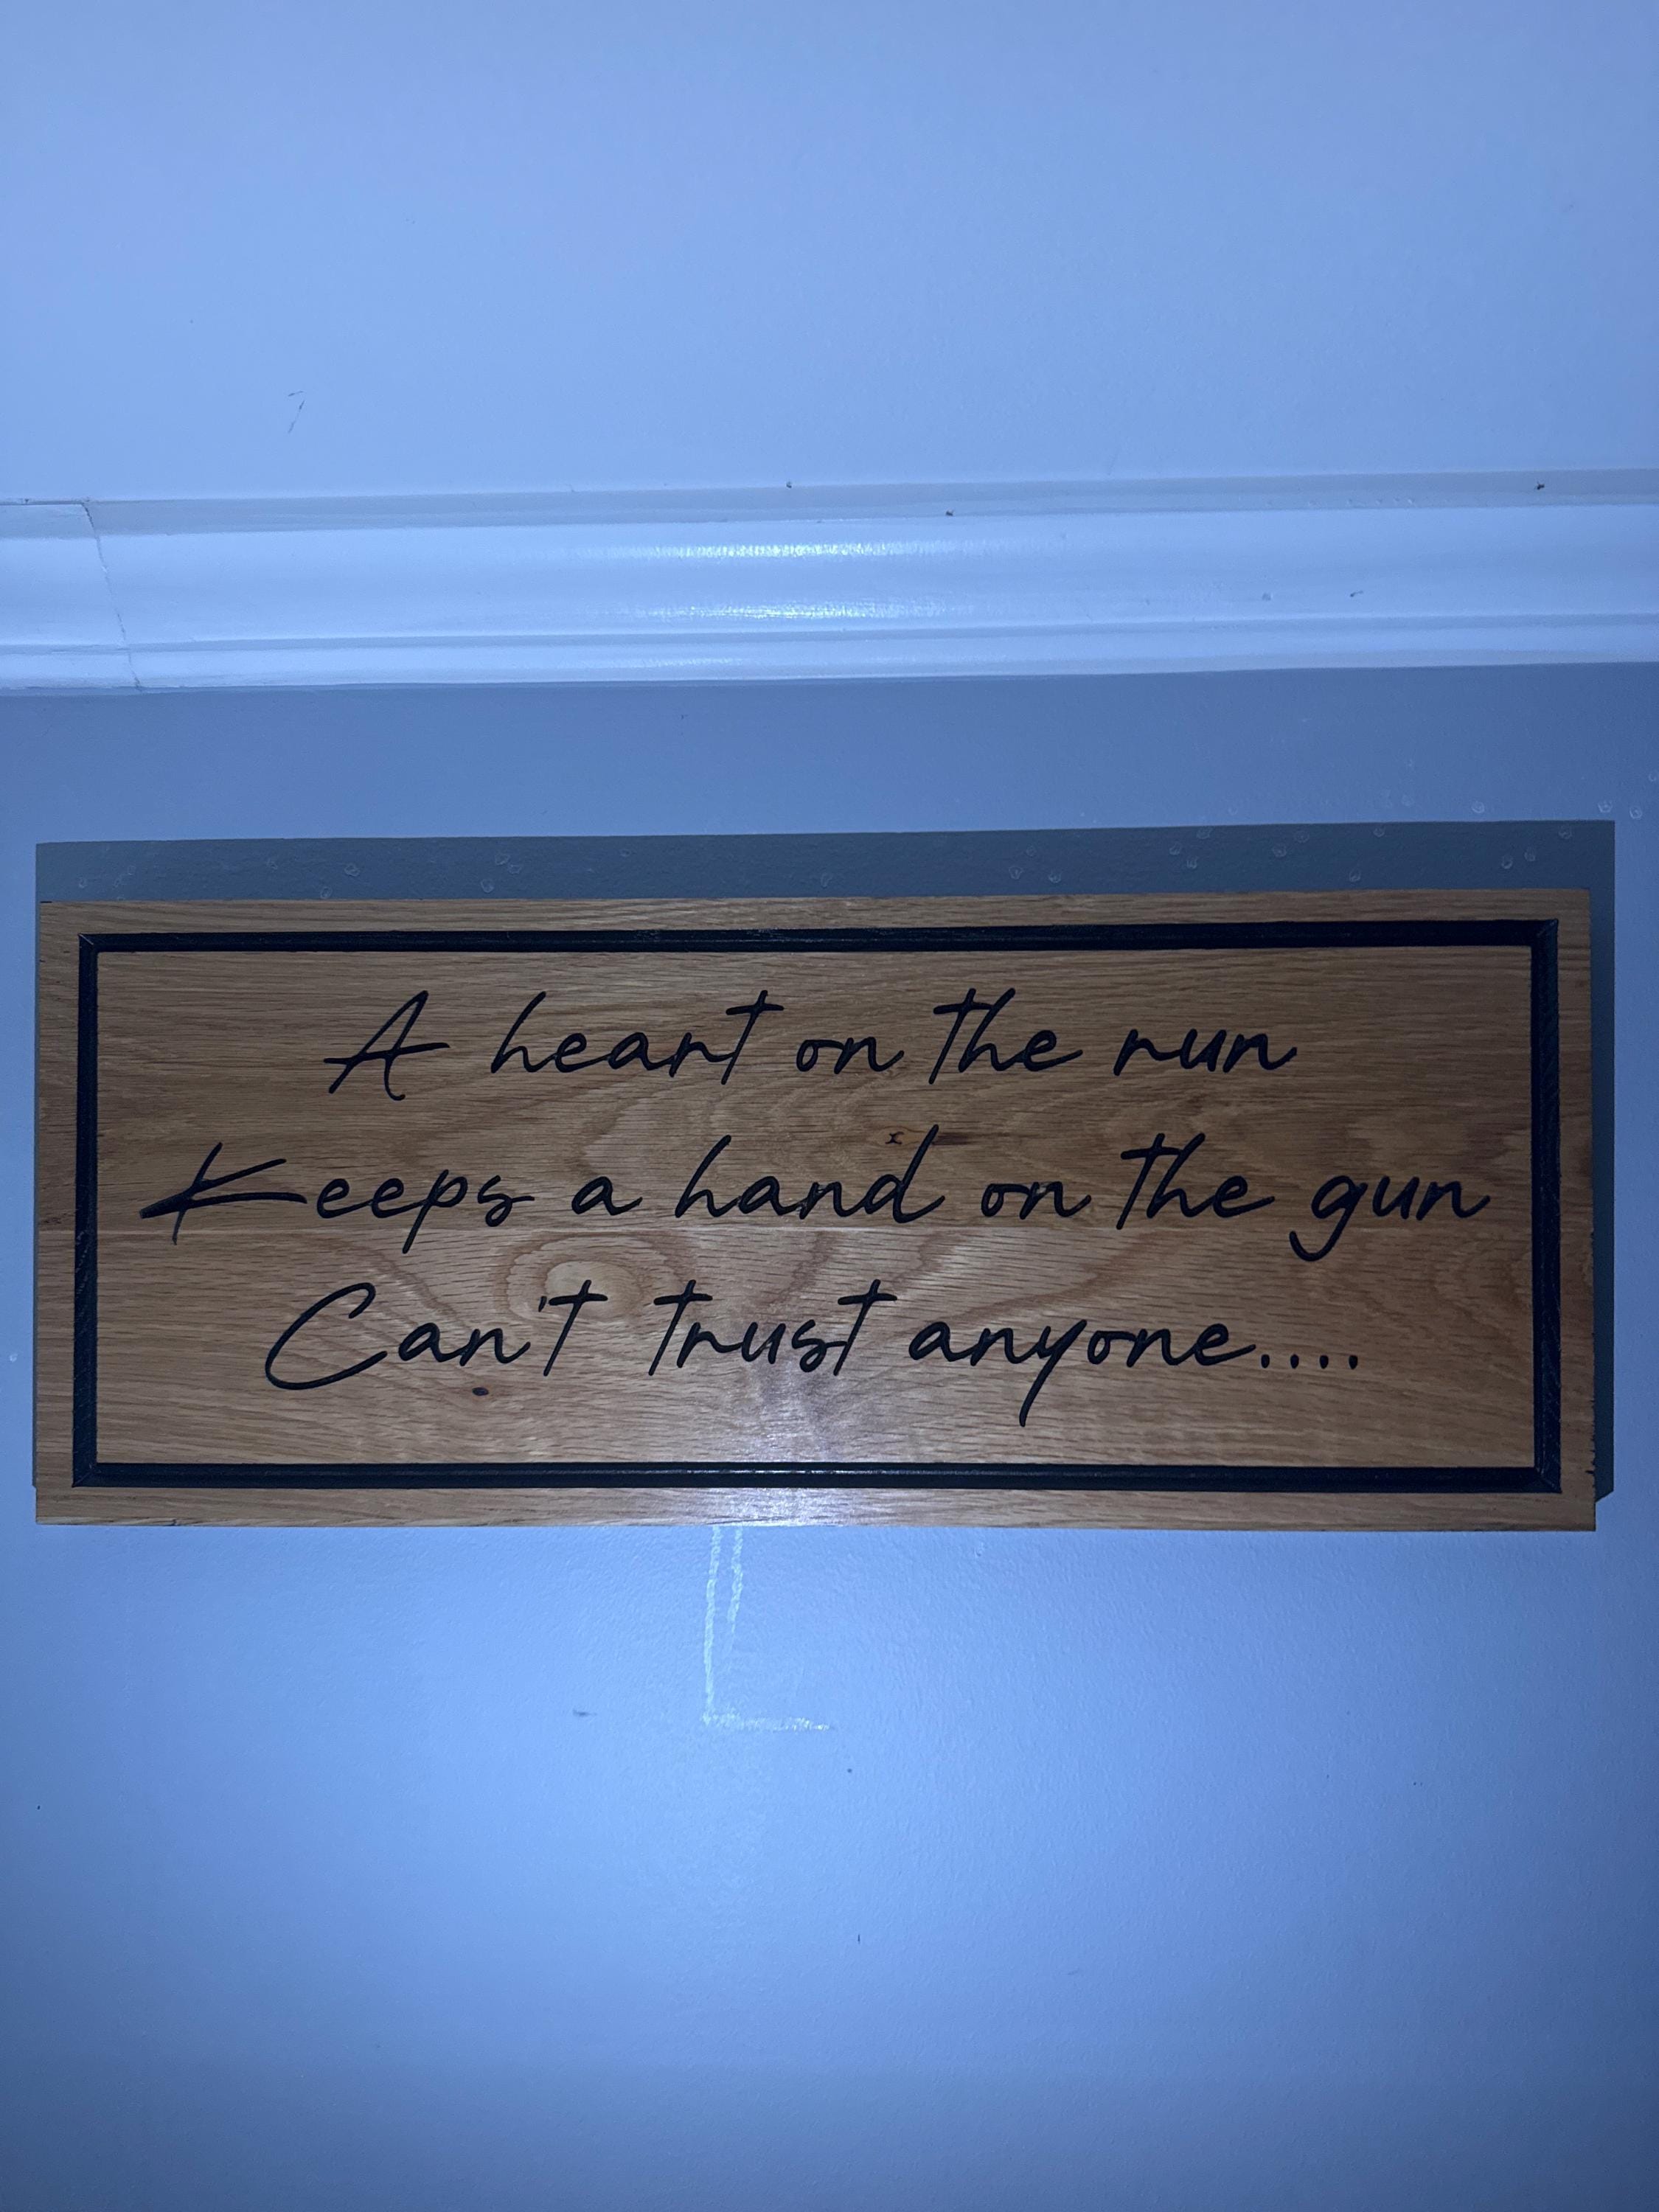 A heart on the run
Keeps a hand on the gun
Can't trust anyone....